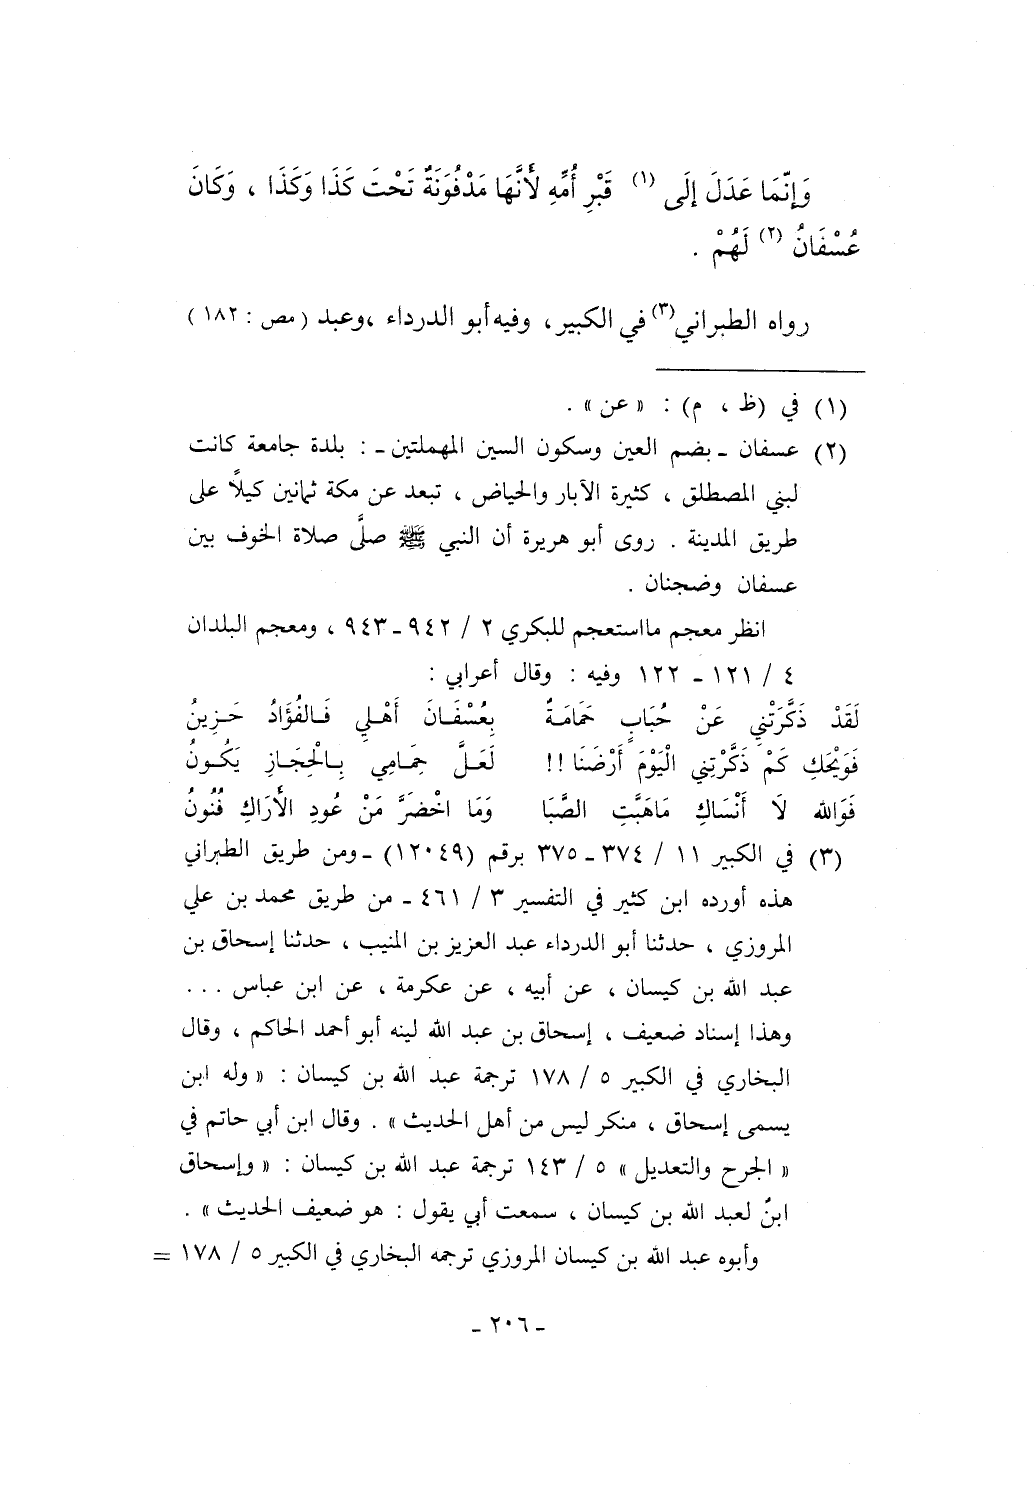 وَإِنَّمَا عَدَلَ إِلَى (١) قَبْرِ أُمِّهِ لأَنَّهَا مَدْفُونَةٌ تَحْتَ كَذَا وَكَذَا ، وَكَانَ
عُسْفَانُ (٢) لَهُمْ .
رواه الطبراني(٣) في الكبير ، وفيه أبو الدرداء ،وعبد ( مص : ١٨٢ )
(١) في (ظ ، م) : « عن » .
(٢) عسفان ـ بضم العين وسكون السين المهملتين ـ : بلدة جامعة كانت
لبني المصطلق ، كثيرة الآبار والحياض ، تبعد عن مكة ثمانين كيلاً على
طريق المدينة . روى أبو هريرة أن النبي ﷺ صلَّى صلاة الخوف بين
عسفان وضجنان .
انظر معجم مااستعجم للبكري ٢ / ٩٤٢ ـ ٩٤٣ ، ومعجم البلدان
٤ / ١٢١ ـ ١٢٢ وفيه : وقال أعرابي :
لَقَدْ ذَكَّرَتْنِي عَنْ حُبَابٍ حَمَامَةٌ بِعُسْفَانَ أَهْلِي فَالفُؤَادُ حَزِينُ
فَوَيْحَكِ كَمْ ذَكَّرْتِنِي الْيَوْمَ أَرْضَنَا !! لَعَلَّ حِمَامِي بِالْحِجَازِ يَكُونُ
فَوَالله لَا أَنْسَاكِ مَاهَبَّتِ الصَّبَا وَمَا اخْضَرَّ مَنْ عُودِ الأَرَاكِ فُنُونُ
(٣) في الكبير ١١ / ٣٧٤ ـ ٣٧٥ برقم (١٢٠٤٩) ـ ومن طريق الطبراني
هذه أورده ابن كثير في التفسير ٣ / ٤٦١ ـ من طريق محمد بن علي
المروزي ، حدثنا أبو الدرداء عبد العزيز بن المنيب ، حدثنا إسحاق بن
عبد الله بن كيسان ، عن أبيه ، عن عكرمة ، عن ابن عباس ...
وهذا إسناد ضعيف ، إسحاق بن عبد الله لينه أبو أحمد الحاكم ، وقال
البخاري في الكبير ٥ / ١٧٨ ترجمة عبد الله بن كيسان : « وله ابن
يسمى إسحاق ، منكر ليس من أهل الحديث » . وقال ابن أبي حاتم في
« الجرح والتعديل » ٥ / ١٤٣ ترجمة عبد الله بن كيسان : « وإسحاق
ابنٌ لعبد الله بن كيسان ، سمعت أبي يقول : هو ضعيف الحديث » .
وأبوه عبد الله بن كيسان المروزي ترجمه البخاري في الكبير ٥ / ١٧٨ =
ـ ٢٠٦ ـ